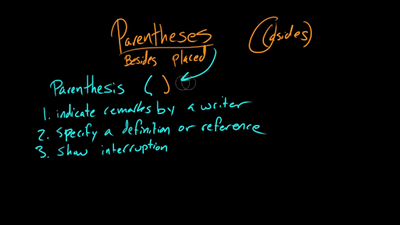 Parentheses (asides)
Besides placed
Parenthesis ( )
1. indicate remarks by a writer
2. specify a definition or reference
3. show interruption